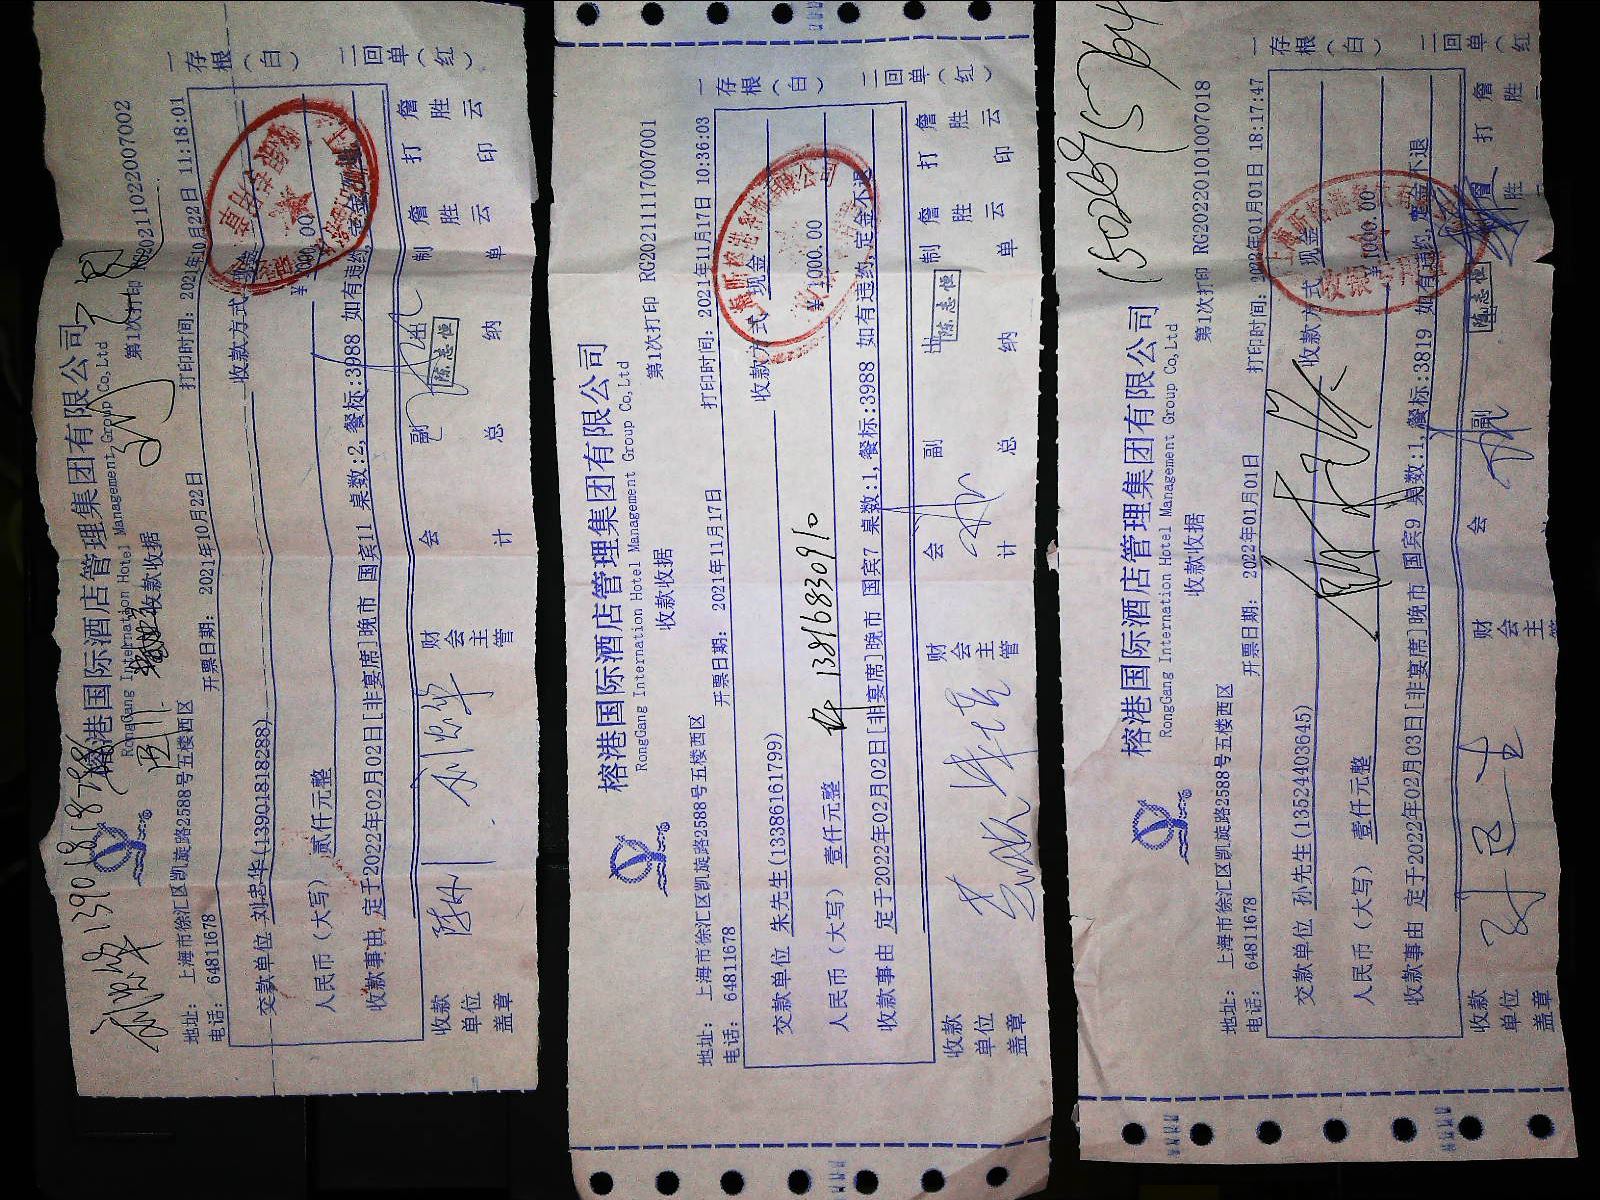 榕港国际酒店管理集团有限公司
RongGang Internation Hotel Management Group Co,Ltd
收款收据
第1次打印 RG20211022007002
地址: 上海市徐汇区凯旋路2588号五楼西区
电话: 64811678
开票日期: 2021年10月22日
打印时间: 2021年10月22日 11:18:01
交款单位 刘忠华(13901818288)
收款方式 现金
人民币(大写) 贰仟元整
收款事由 定于2022年02月02日[非宴席]晚市 国宾11 桌数:2,餐标:3988 如有违约,定金不退
一存根(白)
二回单(红)
收款单位盖章
财会主管
会计
副总
出纳
陈志恒
制单 詹胜云
打印 詹胜云
榕港国际酒店管理集团有限公司
RongGang Internation Hotel Management Group Co,Ltd
收款收据
第1次打印 RG20211117007001
地址: 上海市徐汇区凯旋路2588号五楼西区
电话: 64811678
开票日期: 2021年11月17日
打印时间: 2021年11月17日 10:36:03
交款单位 朱先生(13386161799)
收款方式 现金
人民币(大写) 壹仟元整
13816830910
¥ 1000.00
收款事由 定于2022年02月02日[非宴席]晚市 国宾7 桌数:1,餐标:3988 如有违约,定金不退
一存根(白)
二回单(红)
收款单位盖章
财会主管
会计
副总
出纳
陈志恒
制单 詹胜云
打印 詹胜云
榕港国际酒店管理集团有限公司
RongGang Internation Hotel Management Group Co,Ltd
收款收据
第1次打印 RG20220101007018
地址: 上海市徐汇区凯旋路2588号五楼西区
电话: 64811678
开票日期: 2022年01月01日
打印时间: 2022年01月01日 18:17:47
交款单位 孙先生(13524403645)
收款方式 现金
人民币(大写) 壹仟元整
¥ 1000.00
收款事由 定于2022年02月03日[非宴席]晚市 国宾9 桌数:1,餐标:3819 如有违约,定金不退
一存根(白)
二回单(红)
收款单位盖章
财会主
会
副
陈志恒
打 詹胜